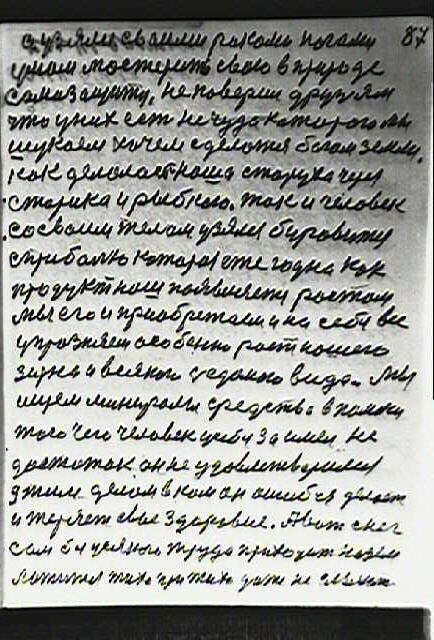 а взяли своими руками ногами 87
умом мастерить свою в природе
самозащиту, не поверил друзьям
что у них есть не чудо которого мы
шукаем хочем сделатся богом земли.
как делала наша старуха чуя
старика и рыбкою. так и человек
со своим телом узялся
которая ежегодно как
продукт наш появляется ростом
мы его и приобретаем и на себя все
упражняем особенно рост нашего
зерна и всякого года вида. Мы
ищем минералы средства в помощи
того чего человек у себя заимел не
достаток он не удовлетворился
этим делом в ком он ошибся делает
и теряет свое здоровие. А вот снег
сам без всякого труда приходит на землю
тихо даже не слышно